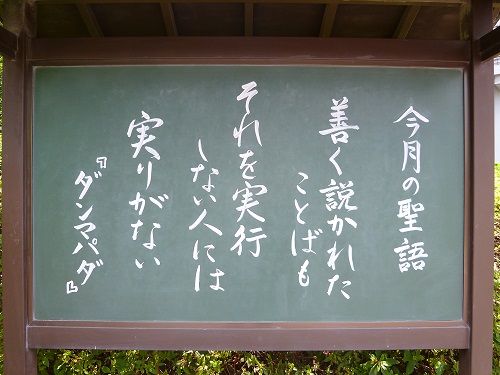 今月の聖語
善く説かれた
ことばも
それを実行
しない人には
実りがない
『ダンマパダ』